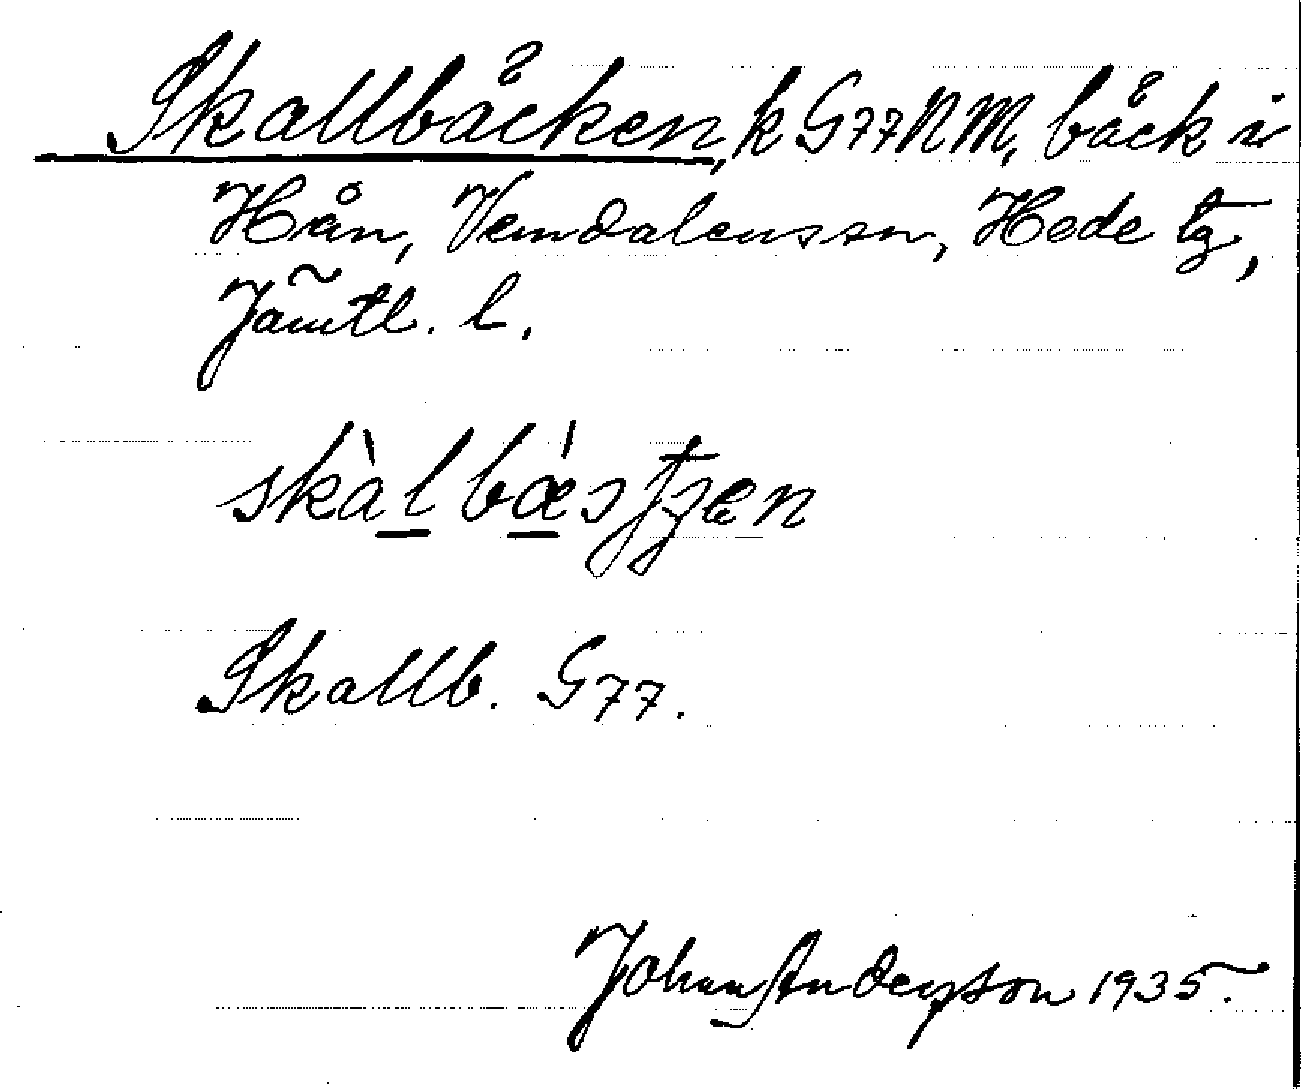 Skallbäcken, k G77NM, bäck i
Hån, Vemdalens sn, Hede tg,
Jämtl. l.
skàlbǽstʃen
Skallb. G77.
Johan Anderson 1935.